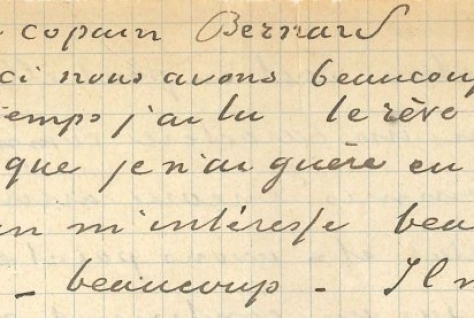 copain Bernard
ci nous avons beaucoup
temps j'ai lu le rêve
que je n'ai guère eu
m'intéresse beau
- beaucoup - Il